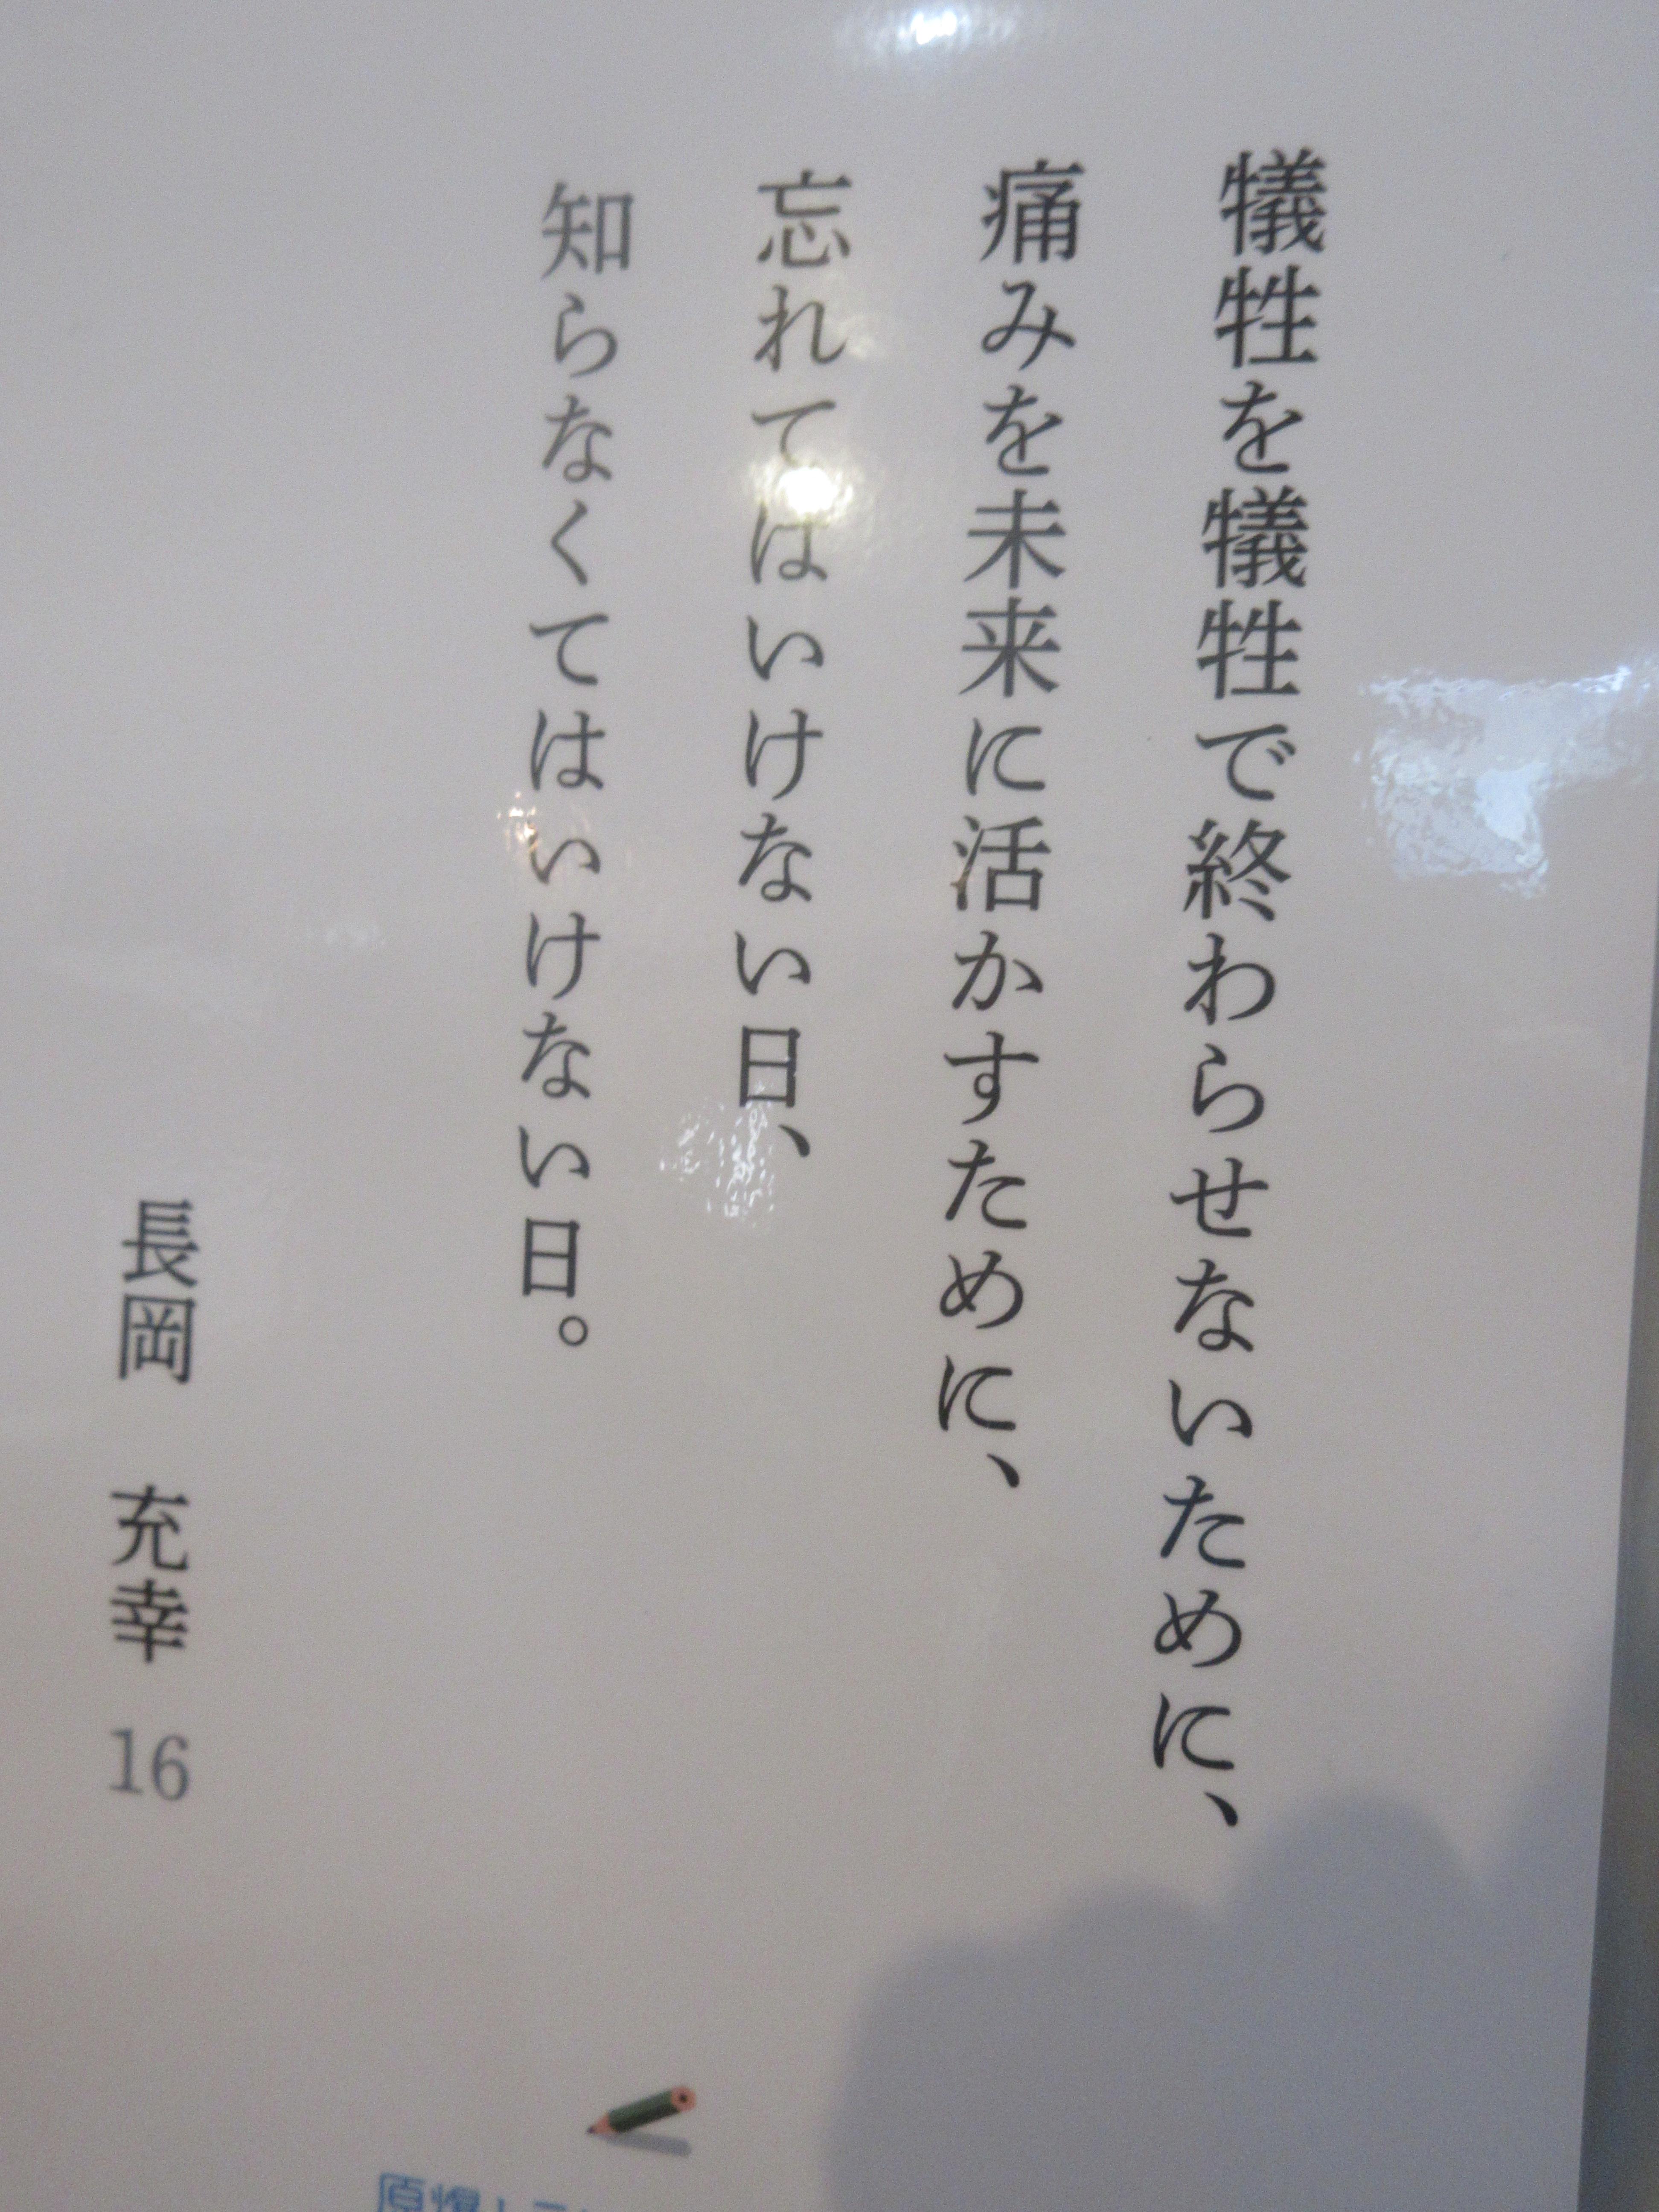 犠牲を犠牲で終わらせないために、
痛みを未来に活かすために、
忘れてはいけない日、
知らなくてはいけない日。
長岡 充幸 16
原爆